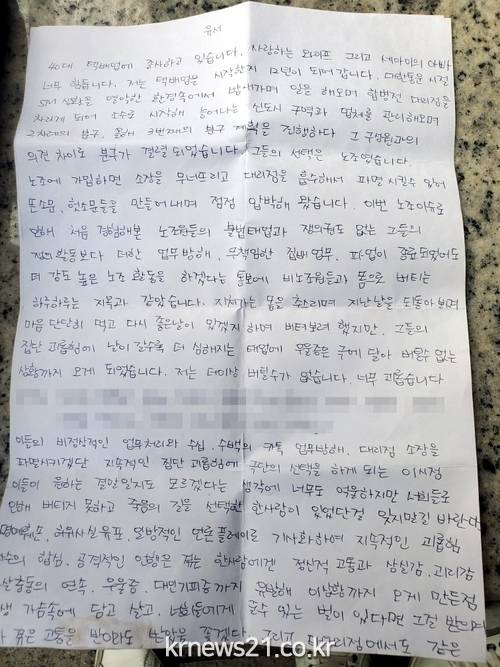 유서
40대 택배업에 종사하고 있습니다. 사랑하는 와이프 그리고 세아이의 아빠
너무 힘듭니다. 저는 택배업을 시작한지 12년이 되어 갑니다. 대한통운 시절
열악한 환경속에서 일을 해오며 합병전 대리점을
차리게 되어 소수로 시작해 늘어나는 신도시 구역과 업체를 관리해오며
2차례의 분구, 올해 3번째의 분구 계획을 진행하다 그 구성원과의
의견 차이로 분구가 결렬 되었습니다. 그들의 선택은 노조였습니다.
노조에 가입하면 소장을 무너뜨리고 대리점을 흡수해서 파멸 시킬수 있어
뜬소문, 헛소문들을 만들어내며 점점 압박해 왔습니다. 이번 노조아유로
인해 처음 경험해본 노조원들의 불법태업과 쟁의권도 없는 그들의
쟁의활동보다 더한 업무방해, 무책임한 집배업무, 파업이 종료되었어도
더 강도 높은 노조 활동을 하겠다는 통보에 비노조원들과 몸으로 버티는
하루하루는 지옥과 같았습니다. 지쳐가는 몸을 추스리며 지난날을 되돌아보며
마음 단단히 먹고 다시 좋은날이 있겠지 하며 버텨보려 했지만, 그들의
집단 괴롭힘에 날이 갈수록 더 심해지는 태업에 우울증은 극에 달아 버틸수 없는
상황까지 오게 되었습니다. 저는 더이상 버틸수가 없습니다. 너무 괴롭습니다
이들의 비정상적인 업무처리와 수십, 수백의 카톡 업무방해, 대리점 소장을
파멸시키겠단 지속적인 집단 괴롭힘에 극단의 선택을 하게 되는 이시점
이들이 원하는 결말일지도 모르겠다는 생각에 너무도 억울하지만 너희들로
인해 버티지 못하고 죽음의 길을 선택한 한사람이 있었단걸 잊지말길 바란다
명예훼손, 허위사실유포, 일방적인 언론플레이로 기사화하여 지속적인 괴롭힘
다수의 협심, 공격적인 언행은 겪는 한사람에겐 정신적 고통과 상실감, 괴리감
살충동의 연속, 우울증, 대인기피증까지 유발해 이상황까지 오게 만든점
생 가슴속에 담고 살고, 너희들에게 줄수 있는 벌이 있다면 그걸 받으며
겪은 고통을 받아라도 봤음 좋겠다. 그리고 타 대리점에서도 같은
krnews21.co.kr